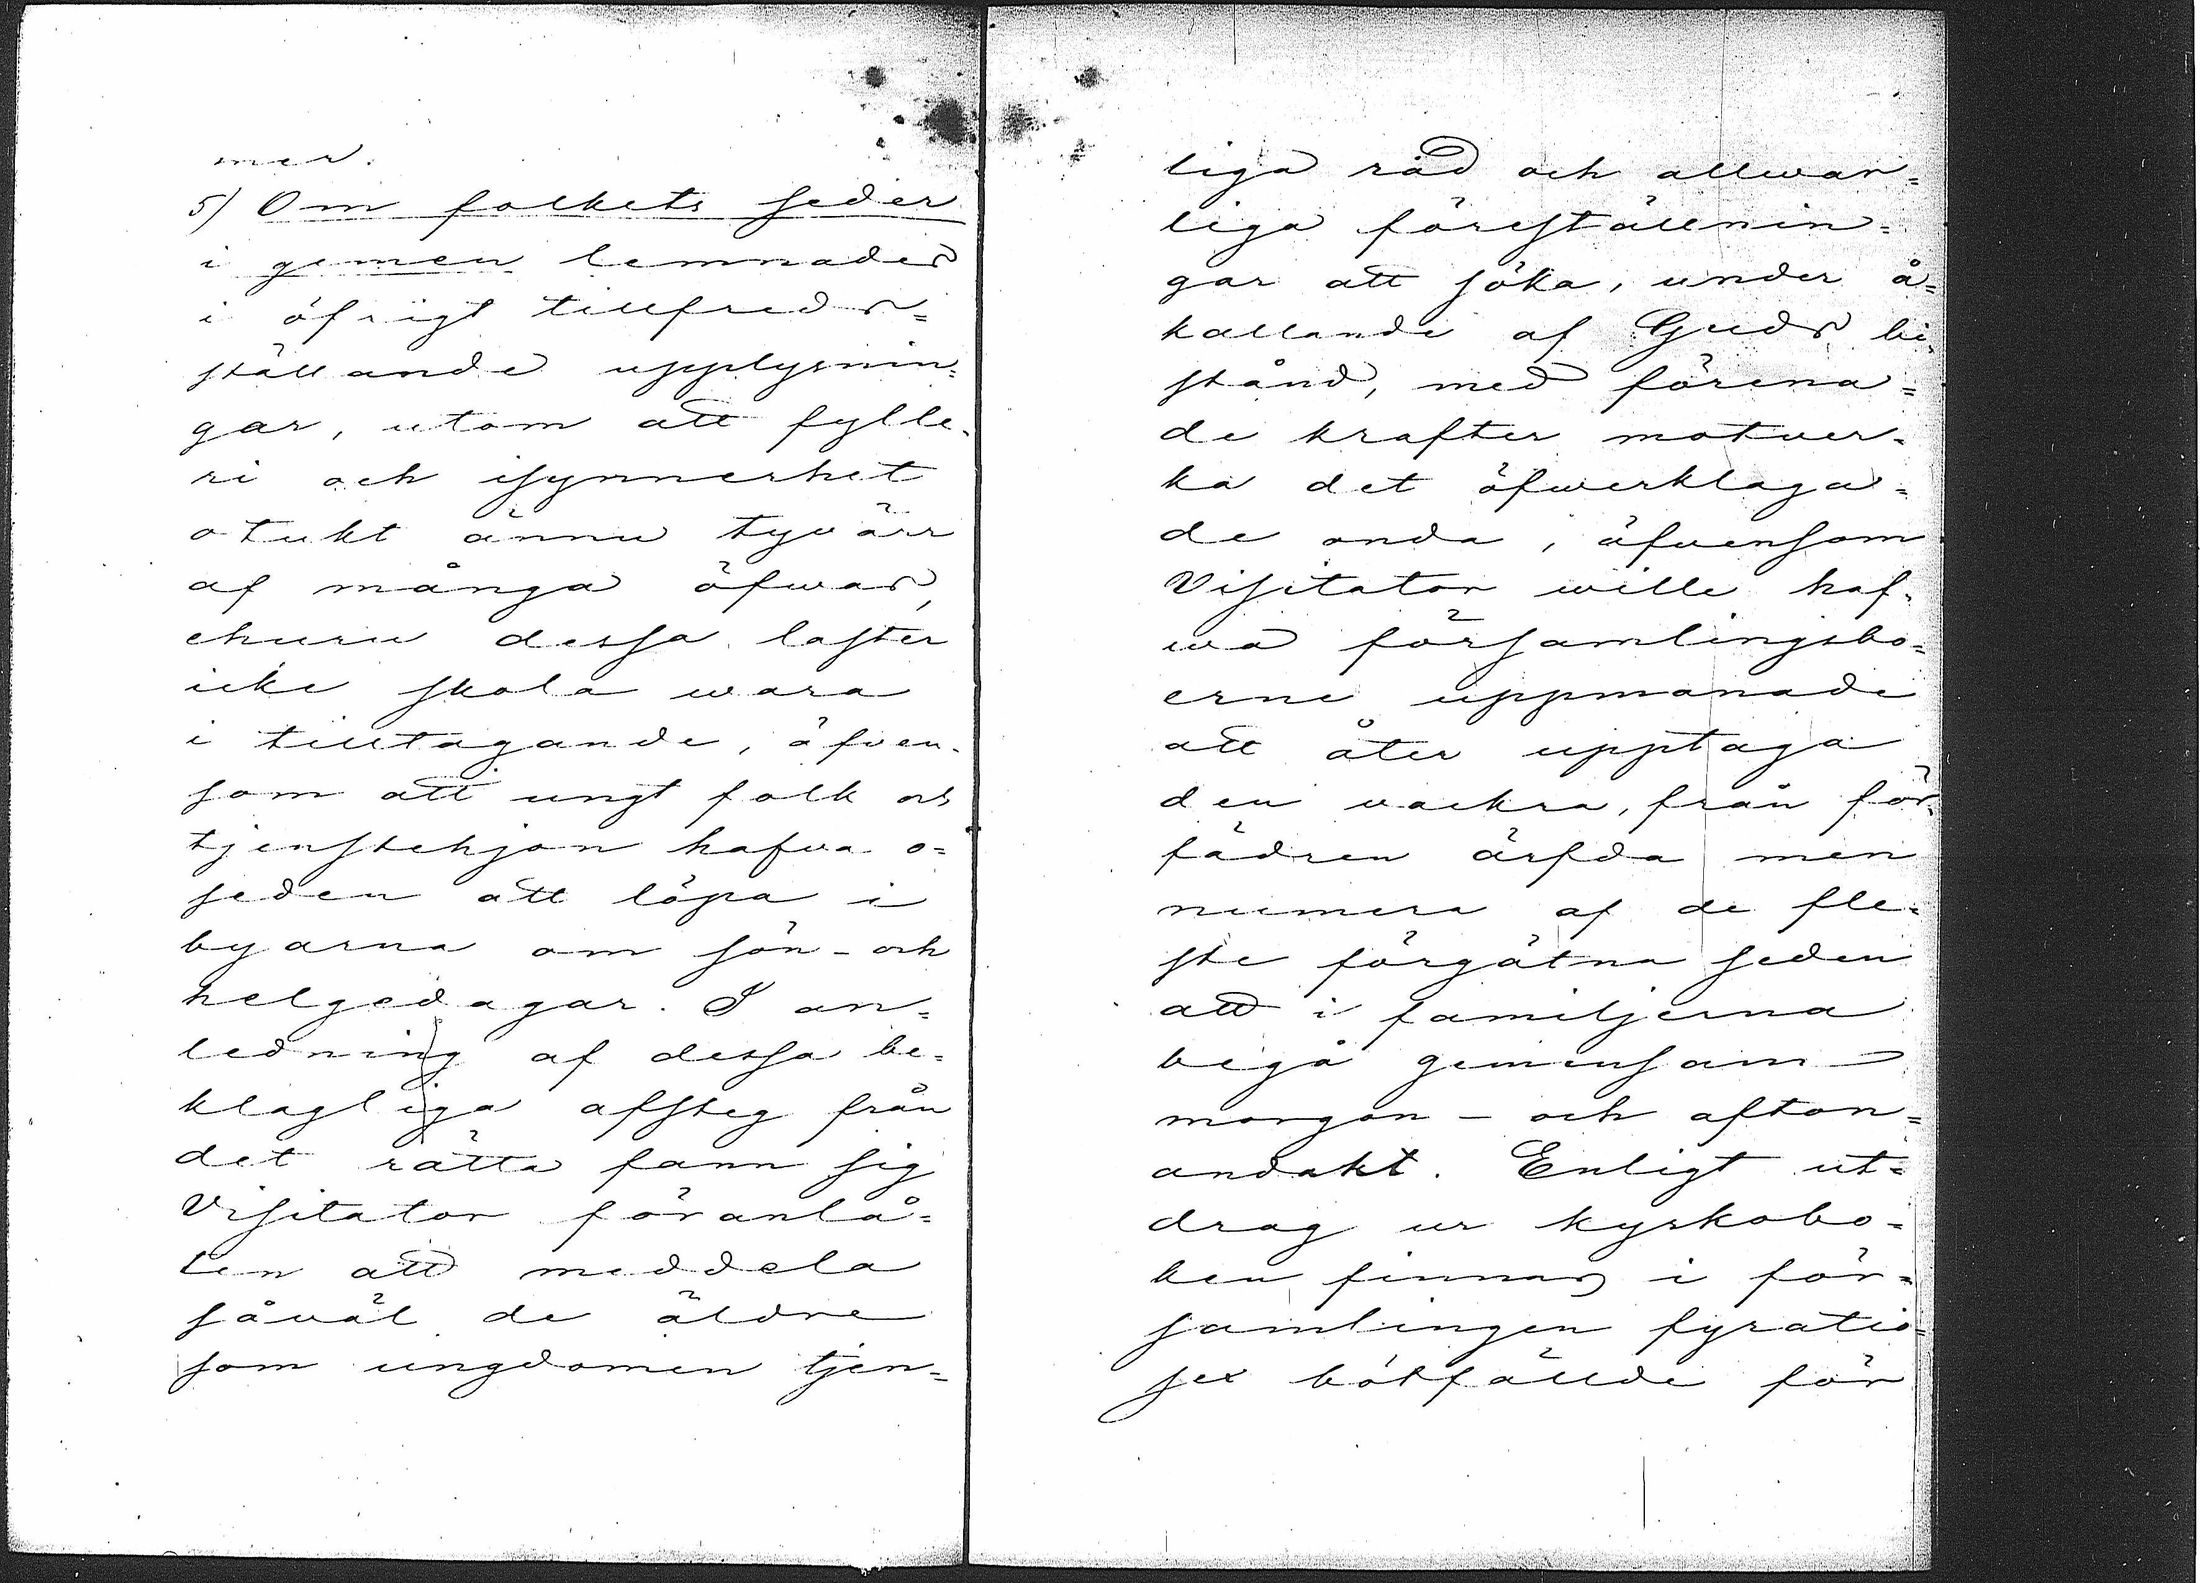 mer.
5) Om folkets seder
i gemen lemnades
i öfrigt tillfreds=
ställande upplysnin=
gar, utom att fylle=
ri och isynnerhet
otukt ännu tyvärr
af många öfwas,
ehuru dessa laster
icke skola wara
i tilltagande, äfven-
som att ungt folk och
tjenstehjon hafva o=
seden att löpa i
byarna om sön- och
helgedagar. I an=
ledning af dessa be=
klagliga afsteg från
det rätta fann sig
Visitator föranlå=
ten att meddela
såväl de äldre
som ungdomen tjen=
liga råd och allwar=
liga föreställnin=
gar att söka, under å=
kallande af Guds bi=
stånd, med förena=
de krafter motver=
ka det öfwerklaga=
de onda, äfvensom
Visitator wille haf=
wa församlingsbo=
erne uppmanade
att åter upptaga
den vackra, från för=
fädren ärfda men
numera af de fle=
ste förgätna seden
att i familjerna
begå gemensam
morgon- och afton=
andakt. Enligt ut=
drag ur kyrkobo=
ken finnas i för=
samlingen fyratio=
sex bötfällde för